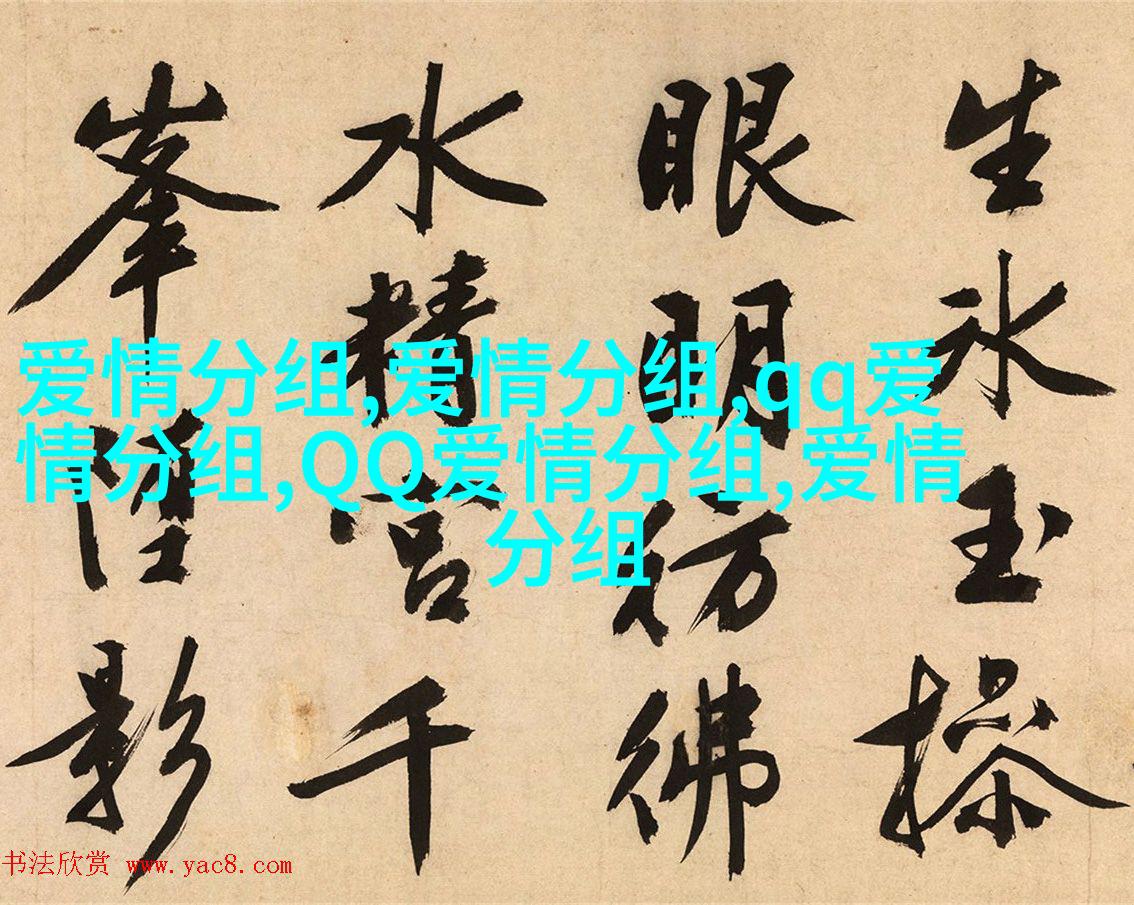 生冰玉操
眼明彷彿
水精宮千
峯墮影
爱情分组,爱情分组,qq爱
情分组,QQ爱情分组,爱情
分组
书法欣赏 www.yac8.com